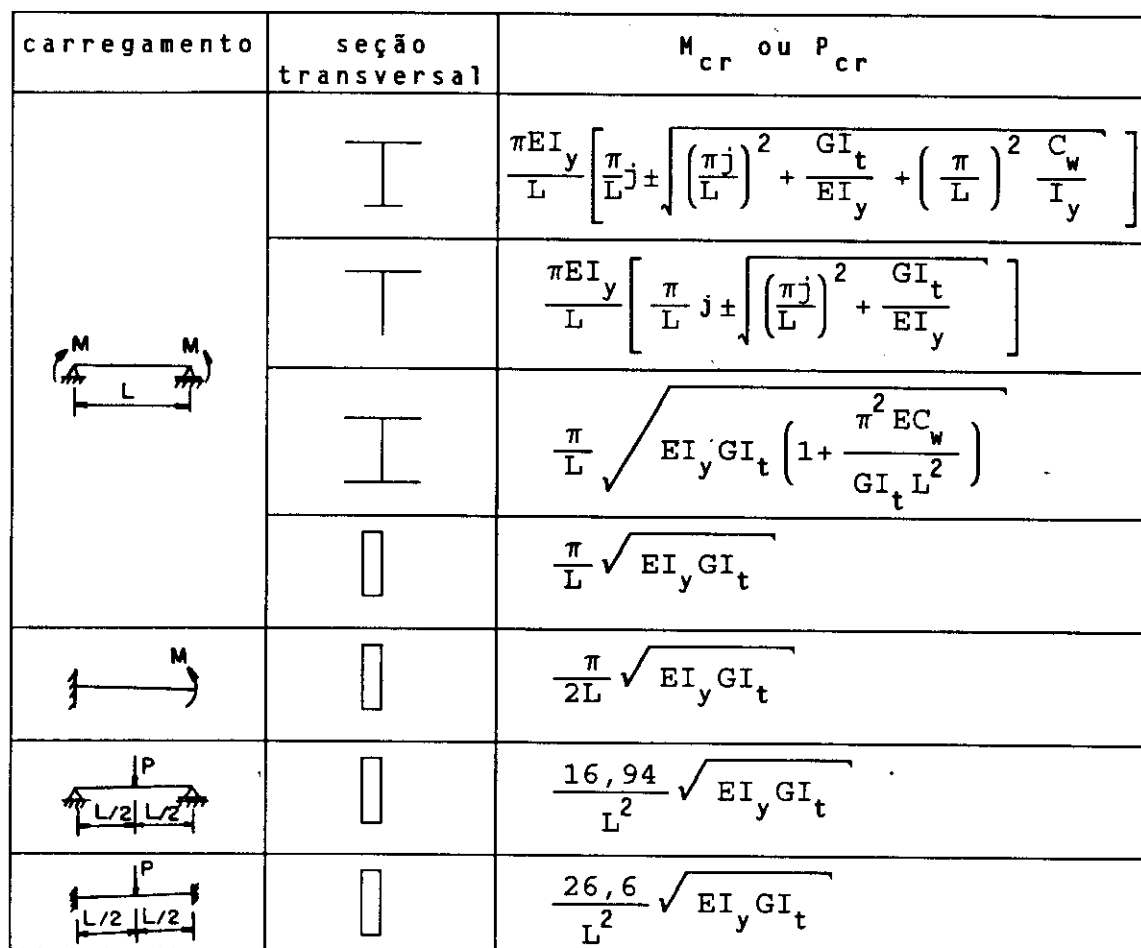 carregamento | seção transversal | M_cr ou P_cr
πEI_y/L [π/L j ± √((πj/L)^2 + GI_t/EI_y + (π/L)^2 C_w/I_y)]
πEI_y/L [π/L j ± √((πj/L)^2 + GI_t/EI_y)]
M M
L
π/L √(EI_y GI_t (1 + π^2 EC_w/GI_t L^2))
π/L √(EI_y GI_t)
M
π/2L √(EI_y GI_t)
P
L/2 L/2
16,94/L^2 √(EI_y GI_t)
P
L/2 L/2
26,6/L^2 √(EI_y GI_t)